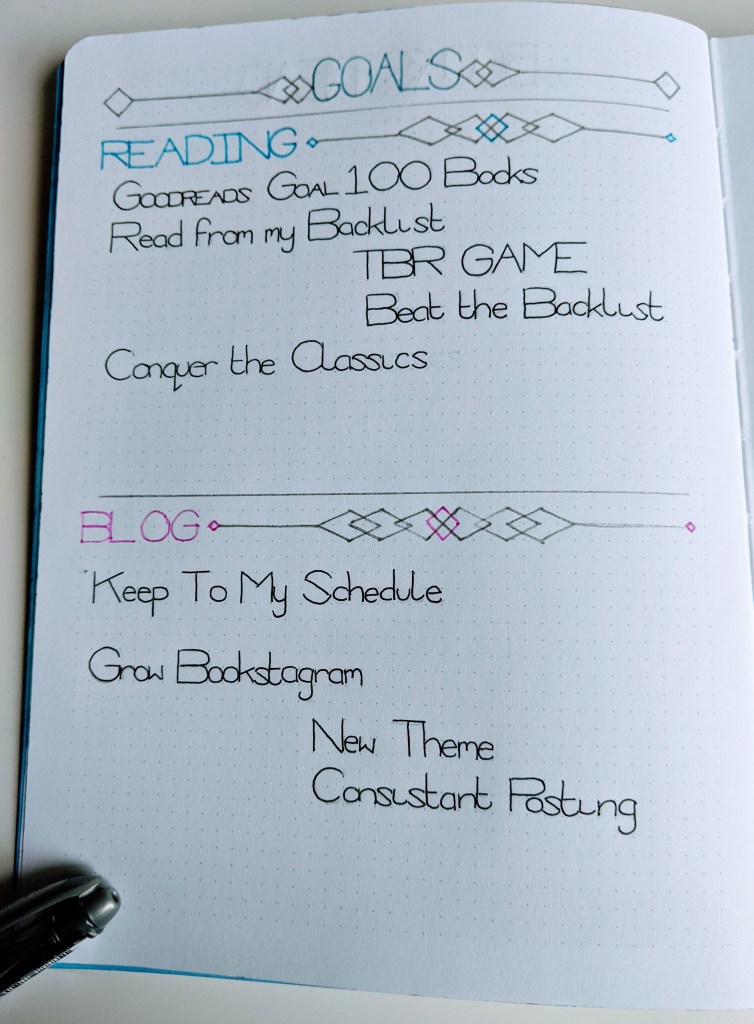 GOALS
READING
GOODREADS GOAL 100 Books
Read from my Backlist
TBR GAME
Beat the Backlist
Conquer the Classics
BLOG
Keep To My Schedule
Grow Bookstagram
New Theme
Consistant Posting